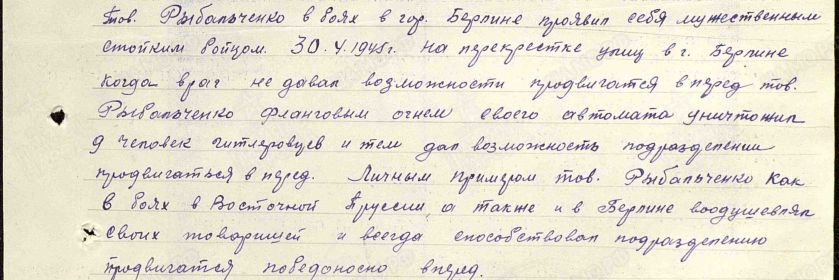 Тов. Рыбальченко в боях в гор. Берлине проявил себя мужественным
стойким бойцом. 30.4.1945г. на перекрестке улиц в г. Берлине
когда враг не давал возможности продвигатся вперед тов.
Рыбальченко фланговым огнем своего автомата уничтожил
9 человек гитлеровцев и тем дал возможность подразделении
продвигаться в перед. Личным примером тов. Рыбальченко как
в боях в Восточной Пруссии, а также и в Берлине воодушевлял
своих товарищей и всегда способствовал подразделению
продвигатся победоносно вперед.